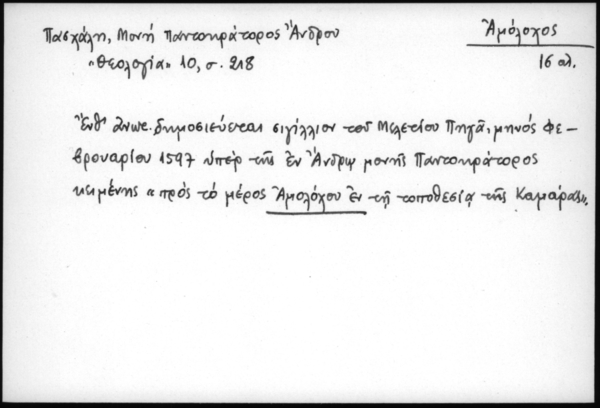 Πασχάλη, Μονή Παντοκράτορος Ἄνδρου
Ἀμόλοχος
«Θεολογία» 10, σ. 218
16 αἰ.
Ἔνθ' ἀνωτ. δημοσιεύεται σιγίλλιον τοῦ Μελετίου Πηγᾶ, μηνός Φε-
βρουαρίου 1597 ὑπέρ τῆς ἐν Ἄνδρῳ μονῆς Παντοκράτορος
κειμένης «πρός τό μέρος Ἀμολόχου ἐν τῇ τοποθεσίᾳ τῆς Καμάρας».